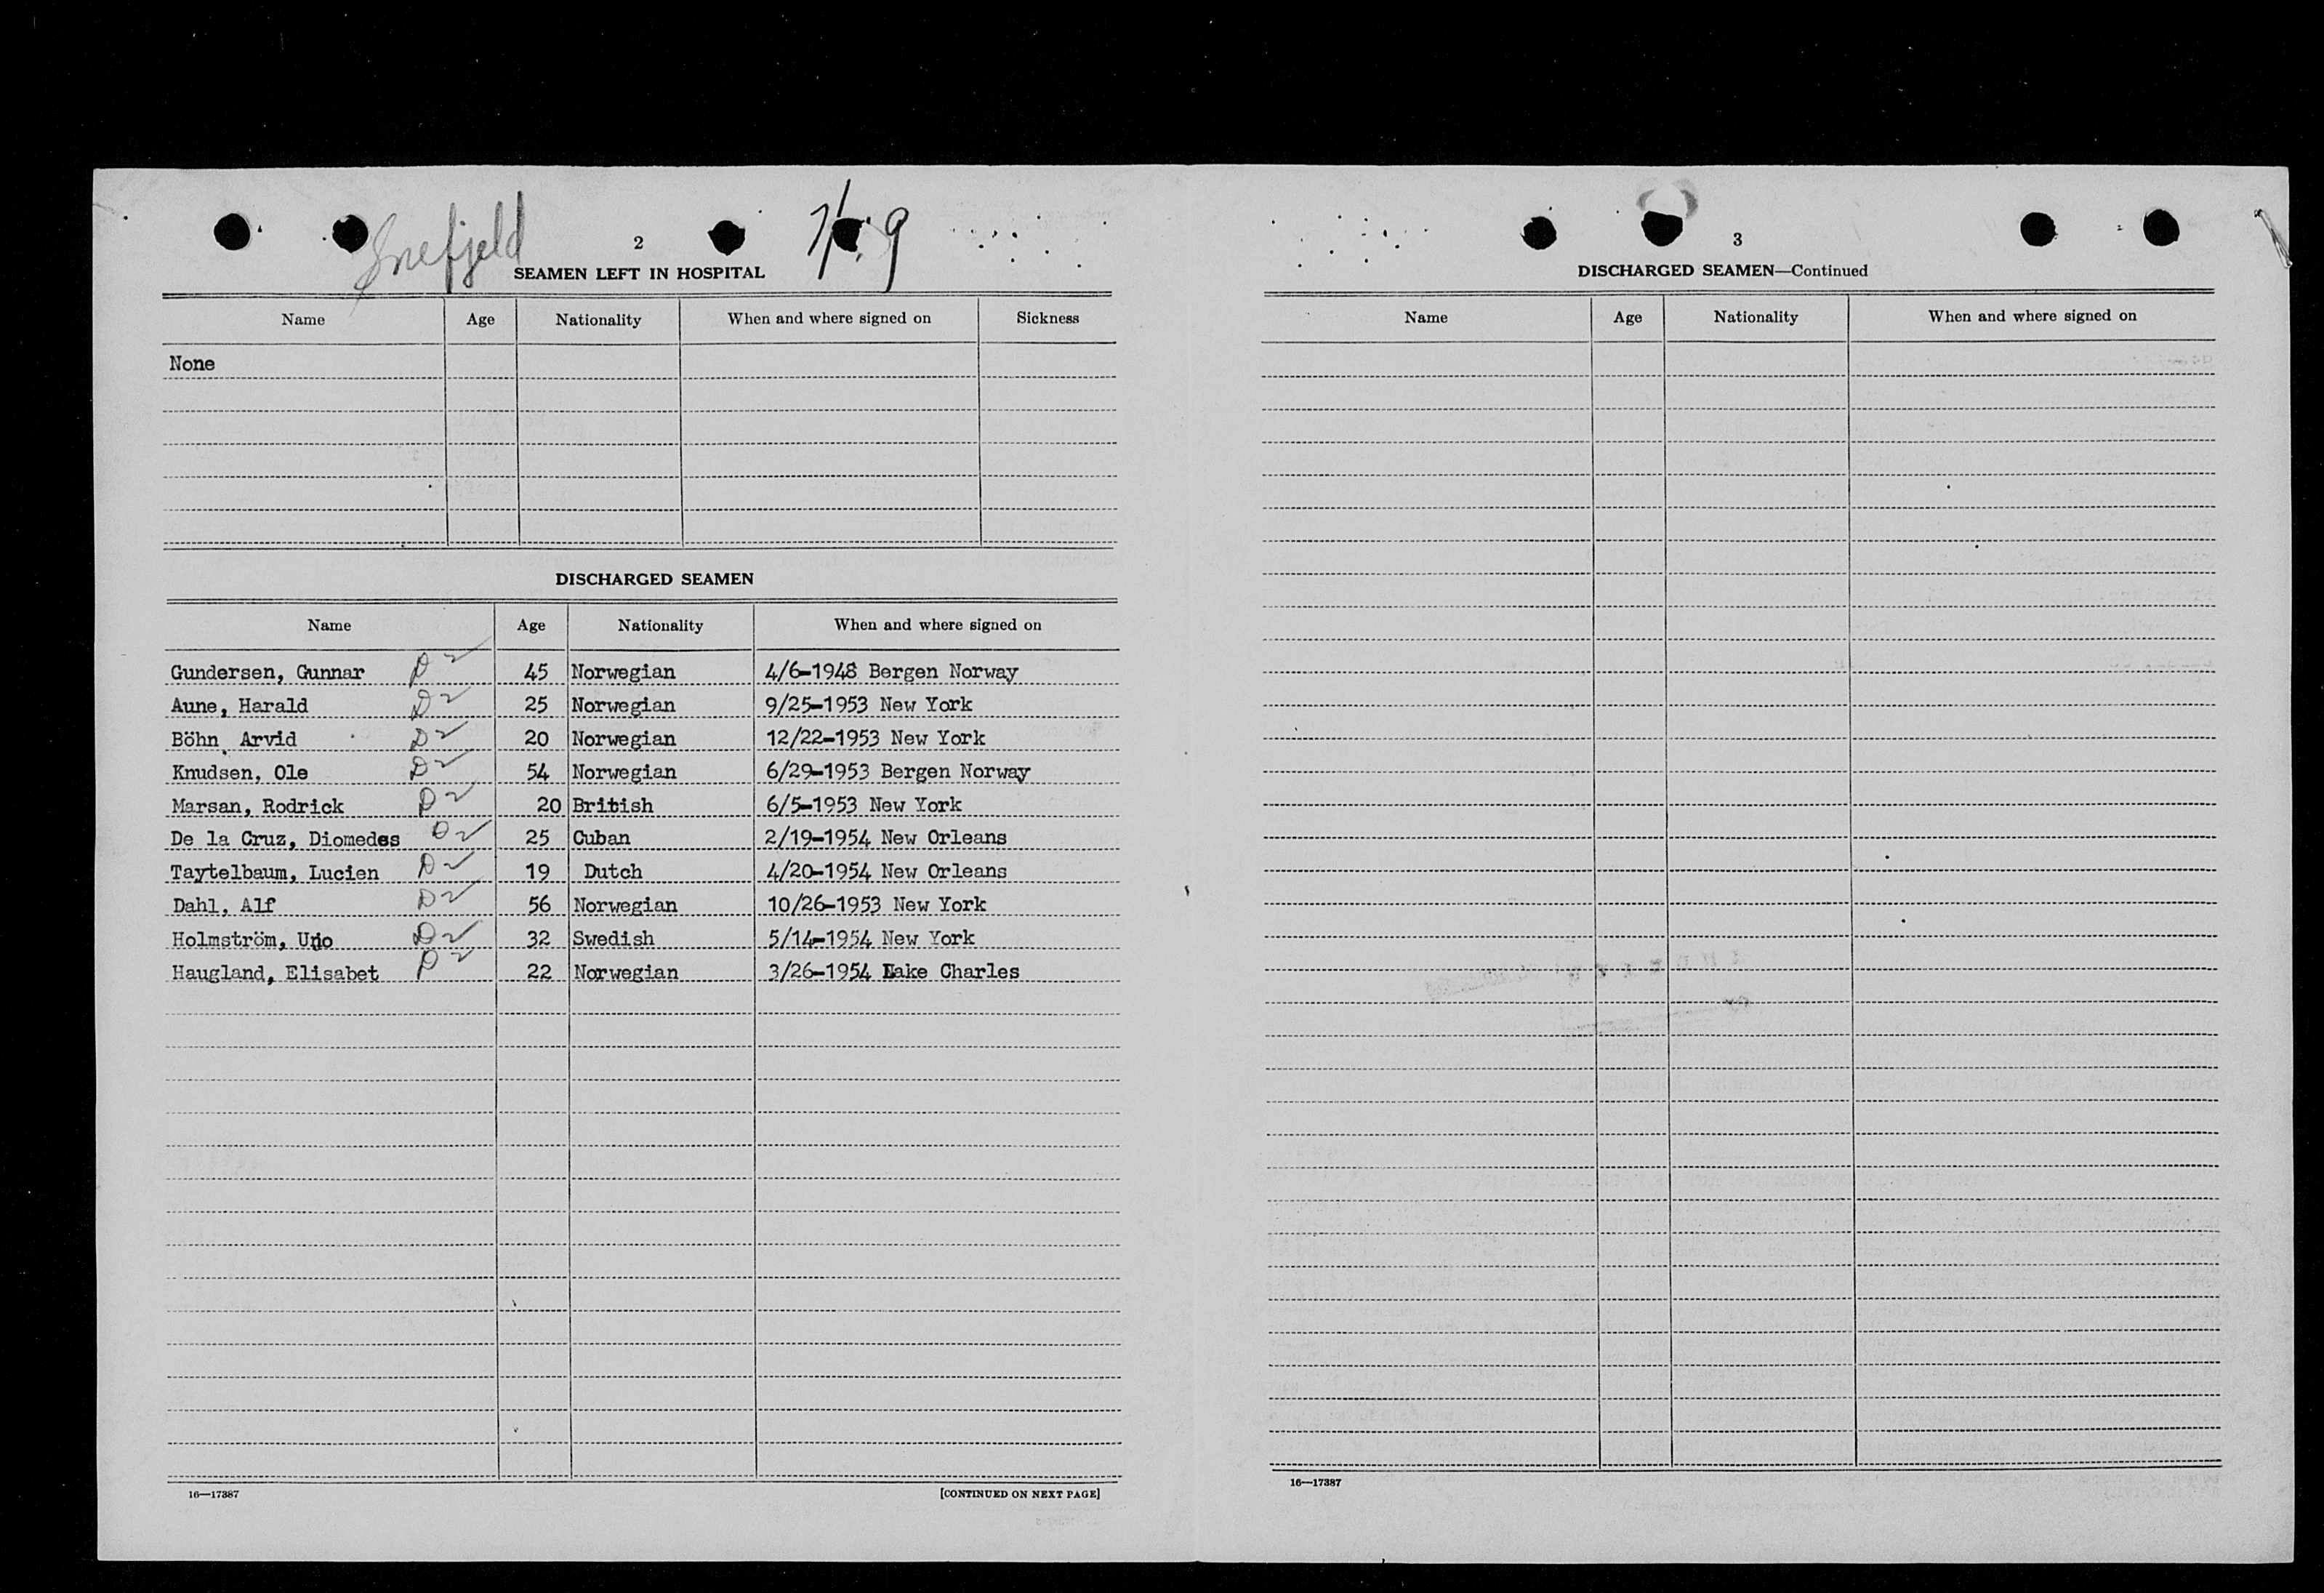 Snefjeld
2
7/9
SEAMEN LEFT IN HOSPITAL
Name Age Nationality When and where signed on Sickness
None
DISCHARGED SEAMEN
Name Age Nationality When and where signed on
Gundersen, Gunnar D2 45 Norwegian 4/6-1948 Bergen Norway
Aune, Harald D2 25 Norwegian 9/25-1953 New York
Böhn, Arvid D2 20 Norwegian 12/22-1953 New York
Knudsen, Ole D2 54 Norwegian 6/29-1953 Bergen Norway
Marsan, Rodrick D2 20 British 6/5-1953 New York
De la Cruz, Diomedes D2 25 Cuban 2/19-1954 New Orleans
Taytelbaum, Lucien D2 19 Dutch 4/20-1954 New Orleans
Dahl, Alf D2 56 Norwegian 10/26-1953 New York
Holmström, Uno D2 32 Swedish 5/14-1954 New York
Haugland, Elisabet D2 22 Norwegian 3/26-1954 Lake Charles
16—17387 [CONTINUED ON NEXT PAGE]
3
DISCHARGED SEAMEN—Continued
Name Age Nationality When and where signed on
16—17387